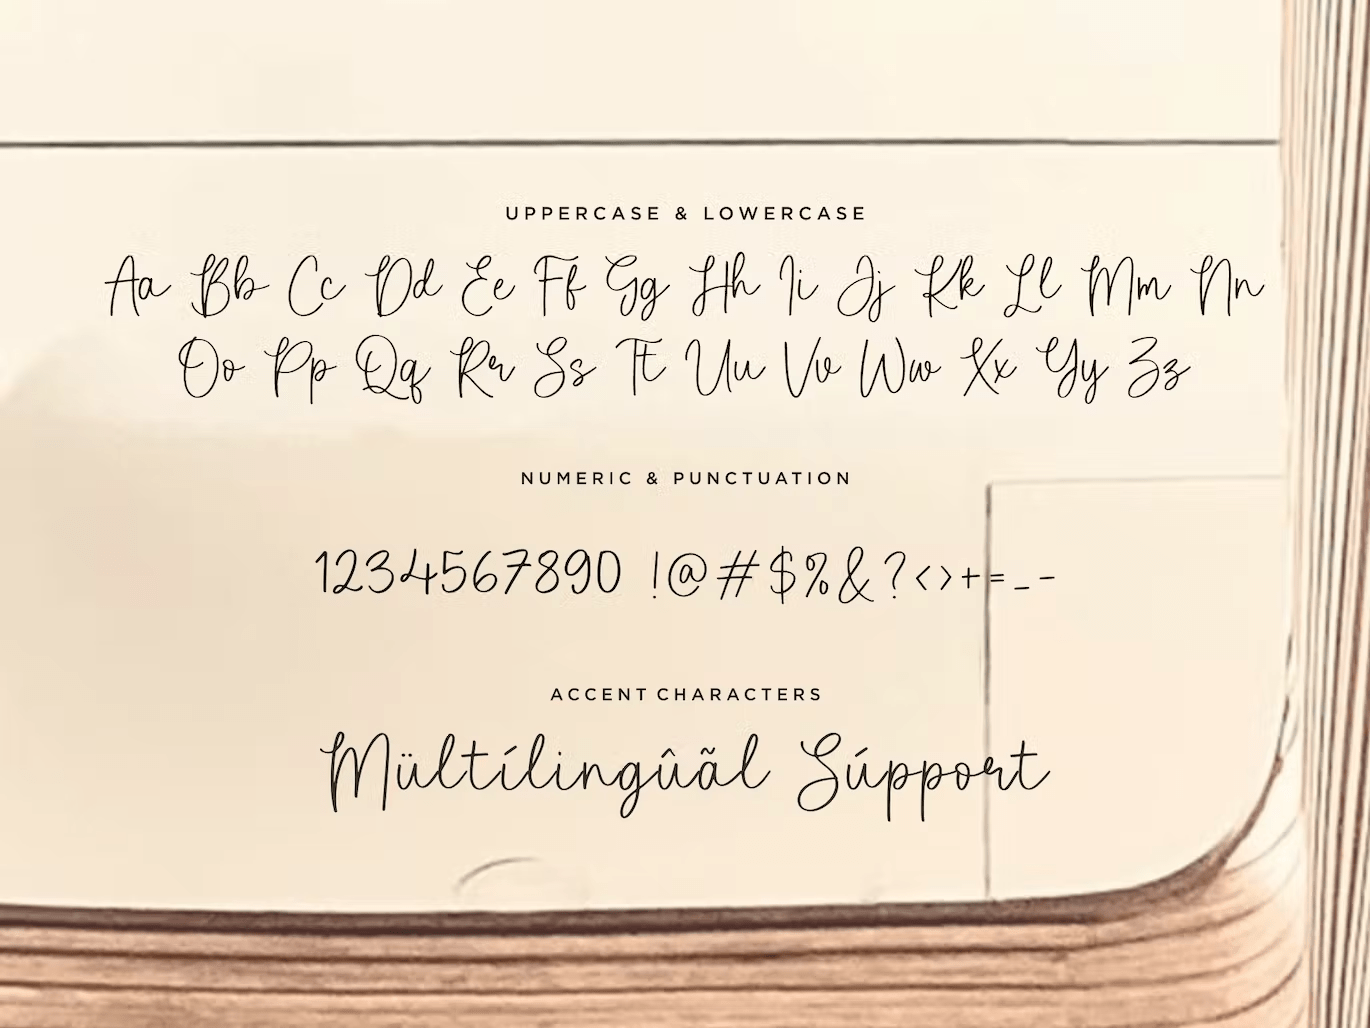 UPPERCASE & LOWERCASE
Aa Bb Cc Dd Ee Ff Gg Hh Ii Jj Kk Ll Mm Nn
Oo Pp Qq Rr Ss Tt Uu Vv Ww Xx Yy Zz
NUMERIC & PUNCTUATION
1234567890 !@#$%&?<>+=_-
ACCENT CHARACTERS
Mültílingûãl Súpport